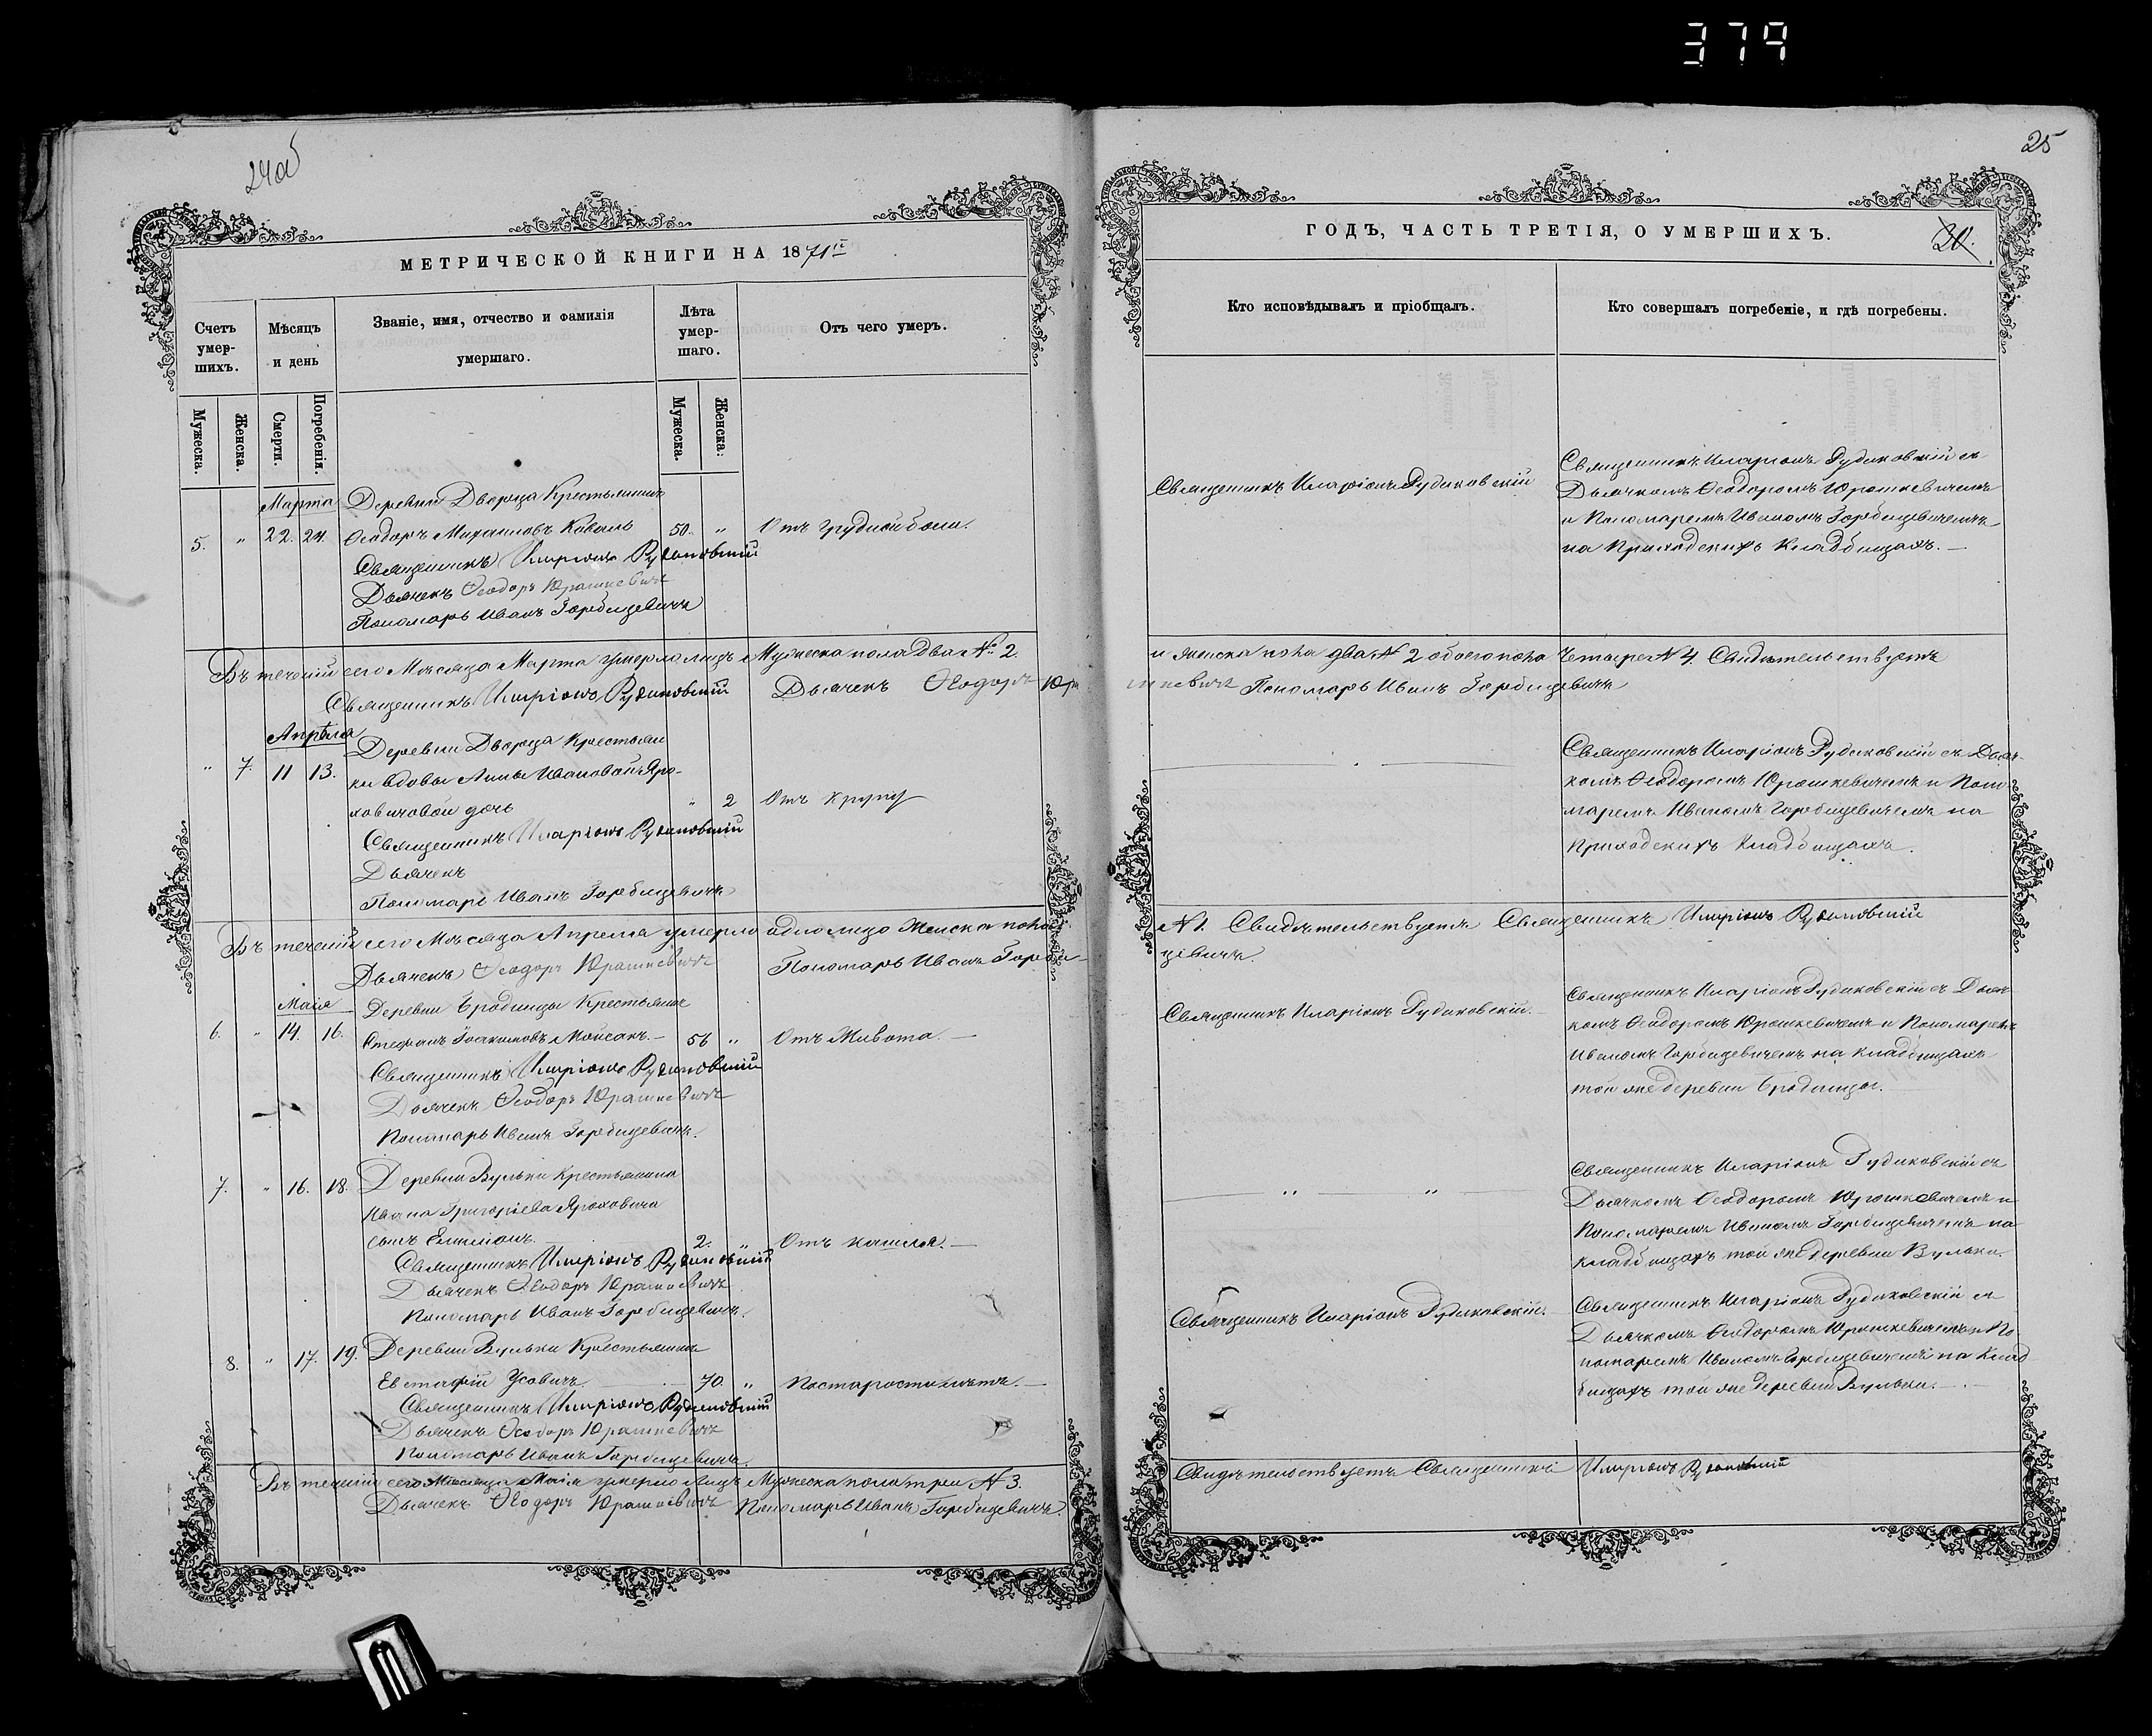 379
24об
МЕТРИЧЕСКОЙ КНИГИ НА 1871й
Счетъ умер-шихъ.
Мѣсяцъ и день
Званіе, имя, отчество и фамилія умершаго.
Лѣта умер-шаго.
Отъ чего умеръ.
Мужеска.
Женска.
Смерти.
Погребенія.
Мужеска.
Женска.
Марта
Деревни Дворца Крестьянинъ
5. " 22. 24. Ѳеодоръ Михаиловъ Коваль 50. " Отъ грудной боли.
Священникъ Иларіонъ Рудаковскій
Дьячекъ Ѳеодоръ Юрашкевичъ
Пономарь Иванъ Горбацевичъ
Въ теченіи сего Мѣсяца Марта умерло лицъ Мужеска пола Два № 2.
Священникъ Иларіонъ Рудаковскій Дьячекъ Ѳеодоръ Юра
Апрѣля
Деревни Дворца Крестьян
" 7. 11 13. ки вдовы Анны Ивановой Яро-
ховичовой дочь " 2 Отъ крупу
Священникъ Иларіонъ Рудаковскій
Дьячекъ
Пономарь Иванъ Горбацевичъ
Въ теченіи сего Мѣсяца Апреля умерло одно лицо Женска пола
Дьячекъ Ѳеодоръ Юрашкевичъ Пономарь Иванъ Горба-
Маія
Деревни Бродницы Крестьянинъ
6. " 14. 16. Стефанъ Іоакимовъ Мойсакъ. 56 " Отъ Живота.
Священникъ Иларіонъ Рудаковскій
Дьячекъ Ѳеодоръ Юрашкевичъ
Пономарь Иванъ Горбацевичъ.
7. " 16. 18. Деревни Вульки Крестьянина
Ивана Григоріева Яроховича
сынъ 2. " Отъ кашля.
Священникъ Иларіонъ Рудаковскій
Дьячекъ Ѳеодоръ Юрашкевичъ
Пономарь Иванъ Горбацевичъ.
8. " 17. 19. Деревни Вульки Крестьянинъ
Евстафій Усовичъ 70. " По старости лѣтъ.
Священникъ Иларіонъ Рудаковскій
Дьячекъ Ѳеодоръ Юрашкевичъ
Пономарь Иванъ Горбацевичъ.
Въ теченіи сего Мѣсяца Маія умерло Лицъ Мужеска пола три № 3.
Дьячекъ Ѳеодоръ Юрашкевичъ Пономарь Иванъ Горбацевичъ.
25
ГОДЪ, ЧАСТЬ ТРЕТІЯ, О УМЕРШИХЪ.
20.
Кто исповѣдывалъ и пріобщалъ.
Кто совершалъ погребеніе, и гдѣ погребены.
Священникъ Иларіонъ Рудаковскій
Священникъ Иларіонъ Рудаковскій съ
Дьячкомъ Ѳеодоромъ Юрашкевичемъ
и Пономаремъ Иваномъ Горбацевичемъ
на Приходскихъ Кладбищахъ.
и женска пола два № 2 обоего пола Четыре № 4. Свидѣтельствуетъ
шкевичъ Пономарь Иванъ Горбацевичъ
Священникъ Иларіонъ Рудаковскій съ Дьяч-
комъ Ѳеодоромъ Юрашкевичемъ и Поно
маремъ Иваномъ Горбацевичемъ на
Приходскихъ Кладбищахъ.
№ 1. Свидѣтельствуетъ Священникъ Иларіонъ Рудаковскій
цевичъ.
Священникъ Иларіонъ Рудаковскій.
Священникъ Иларіонъ Рудаковскій съ Дьяч-
комъ Ѳеодоромъ Юрашкевичемъ и Пономаремъ
Иваномъ Горбацевичемъ на кладбищахъ
той же деревни Бродницы.
" "
Священникъ Иларіонъ Рудаковскій съ
Дьячкомъ Ѳеодоромъ Юрошкевичемъ и
Пономаремъ Иваномъ Горбацевичемъ на
кладбищахъ той же деревни Вульки.
Священникъ Иларіонъ Рудаковскій.
Священникъ Иларіонъ Рудаковскій съ
Дьячкомъ Ѳеодоромъ Юрашкевичемъ и По-
номаремъ Иваномъ Горбацевичемъ на Клад
бищахъ той же деревни Вульки.
Свидѣтельствуетъ Священникъ Иларіонъ Рудаковскій